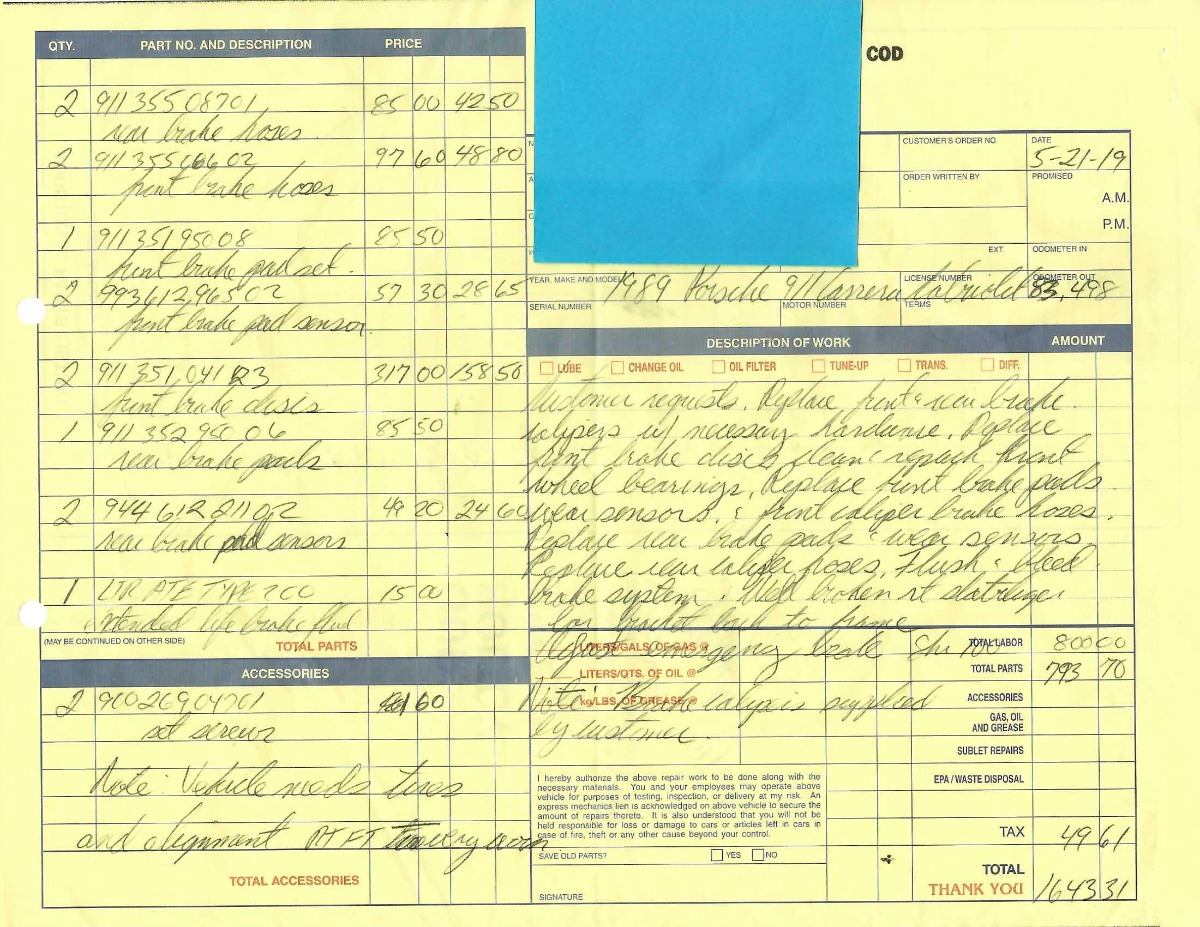 COD
QTY. PART NO. AND DESCRIPTION PRICE
2 911 355 087 01 85 00 42 50
rear brake hoses
2 911 355 02 97 60 48 80
front brake hoses
1 911 351 950 08 85 50
front brake pad set.
2 993 612 965 02 57 30 28 65
front brake pad sensor
2 911 351 041 23 317 00 158 50
front brake discs
1 911 352 06 85 50
rear brake pads
2 944 612 211 02 49 20 24 60
rear brake pad sensors
1 LTR ATE TYPE 200 15 00
extended life brake fluid
(MAY BE CONTINUED ON OTHER SIDE)
TOTAL PARTS
ACCESSORIES
2 900 269 047 01 60
set screws
Note: Vehicle needs tires
and alignment RT FT very worn
TOTAL ACCESSORIES
CUSTOMER'S ORDER NO. DATE
5-21-19
ORDER WRITTEN BY PROMISED
A.M.
P.M.
EXT. ODOMETER IN
YEAR, MAKE AND MODEL LICENSE NUMBER ODOMETER OUT
1989 Porsche 911 Carrera Cabriolet 83,498
SERIAL NUMBER MOTOR NUMBER TERMS
DESCRIPTION OF WORK AMOUNT
LUBE CHANGE OIL OIL FILTER TUNE-UP TRANS. DIFF.
Customer requests. Replace front & rear brake
calipers w/ necessary hardware. Replace
front brake discs clean & repack front
wheel bearings. Replace front brake pads
wear sensors. & front caliper brake hoses.
Replace rear brake pads & wear sensors
Replace rear caliper hoses. Flush & bleed
brake system. Weld broken rt
bracket back to frame
LITERS/GALS. OF GAS @ TOTAL LABOR 800 00
Adjust emergency brake
LITERS/QTS. OF OIL @ TOTAL PARTS 793 70
kg/LBS. OF GREASE @ ACCESSORIES
Note: Brake calipers supplied
by customer.
GAS, OIL
AND GREASE
SUBLET REPAIRS
EPA / WASTE DISPOSAL
I hereby authorize the above repair work to be done along with the
necessary materials. You and your employees may operate above
vehicle for purposes of testing, inspection, or delivery at my risk. An
express mechanics lien is acknowledged on above vehicle to secure the
amount of repairs thereto. It is also understood that you will not be
held responsible for loss or damage to cars or articles left in cars in
case of fire, theft or any other cause beyond your control.
TAX 49 61
SAVE OLD PARTS? YES NO
TOTAL
THANK YOU 1643 31
SIGNATURE